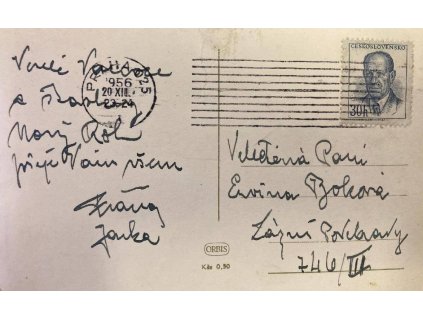 Veselé Vánoce
a Šťastný
Nový Rok
přeje Vám všem
Janka
PRAHA 025
1956
20 XII.
23-24
ČESKOSLOVENSKO
30h
Velectěná Paní
Ervína Boková
Lázně Poděbrady
746/III
ORBIS
Kčs 0,50